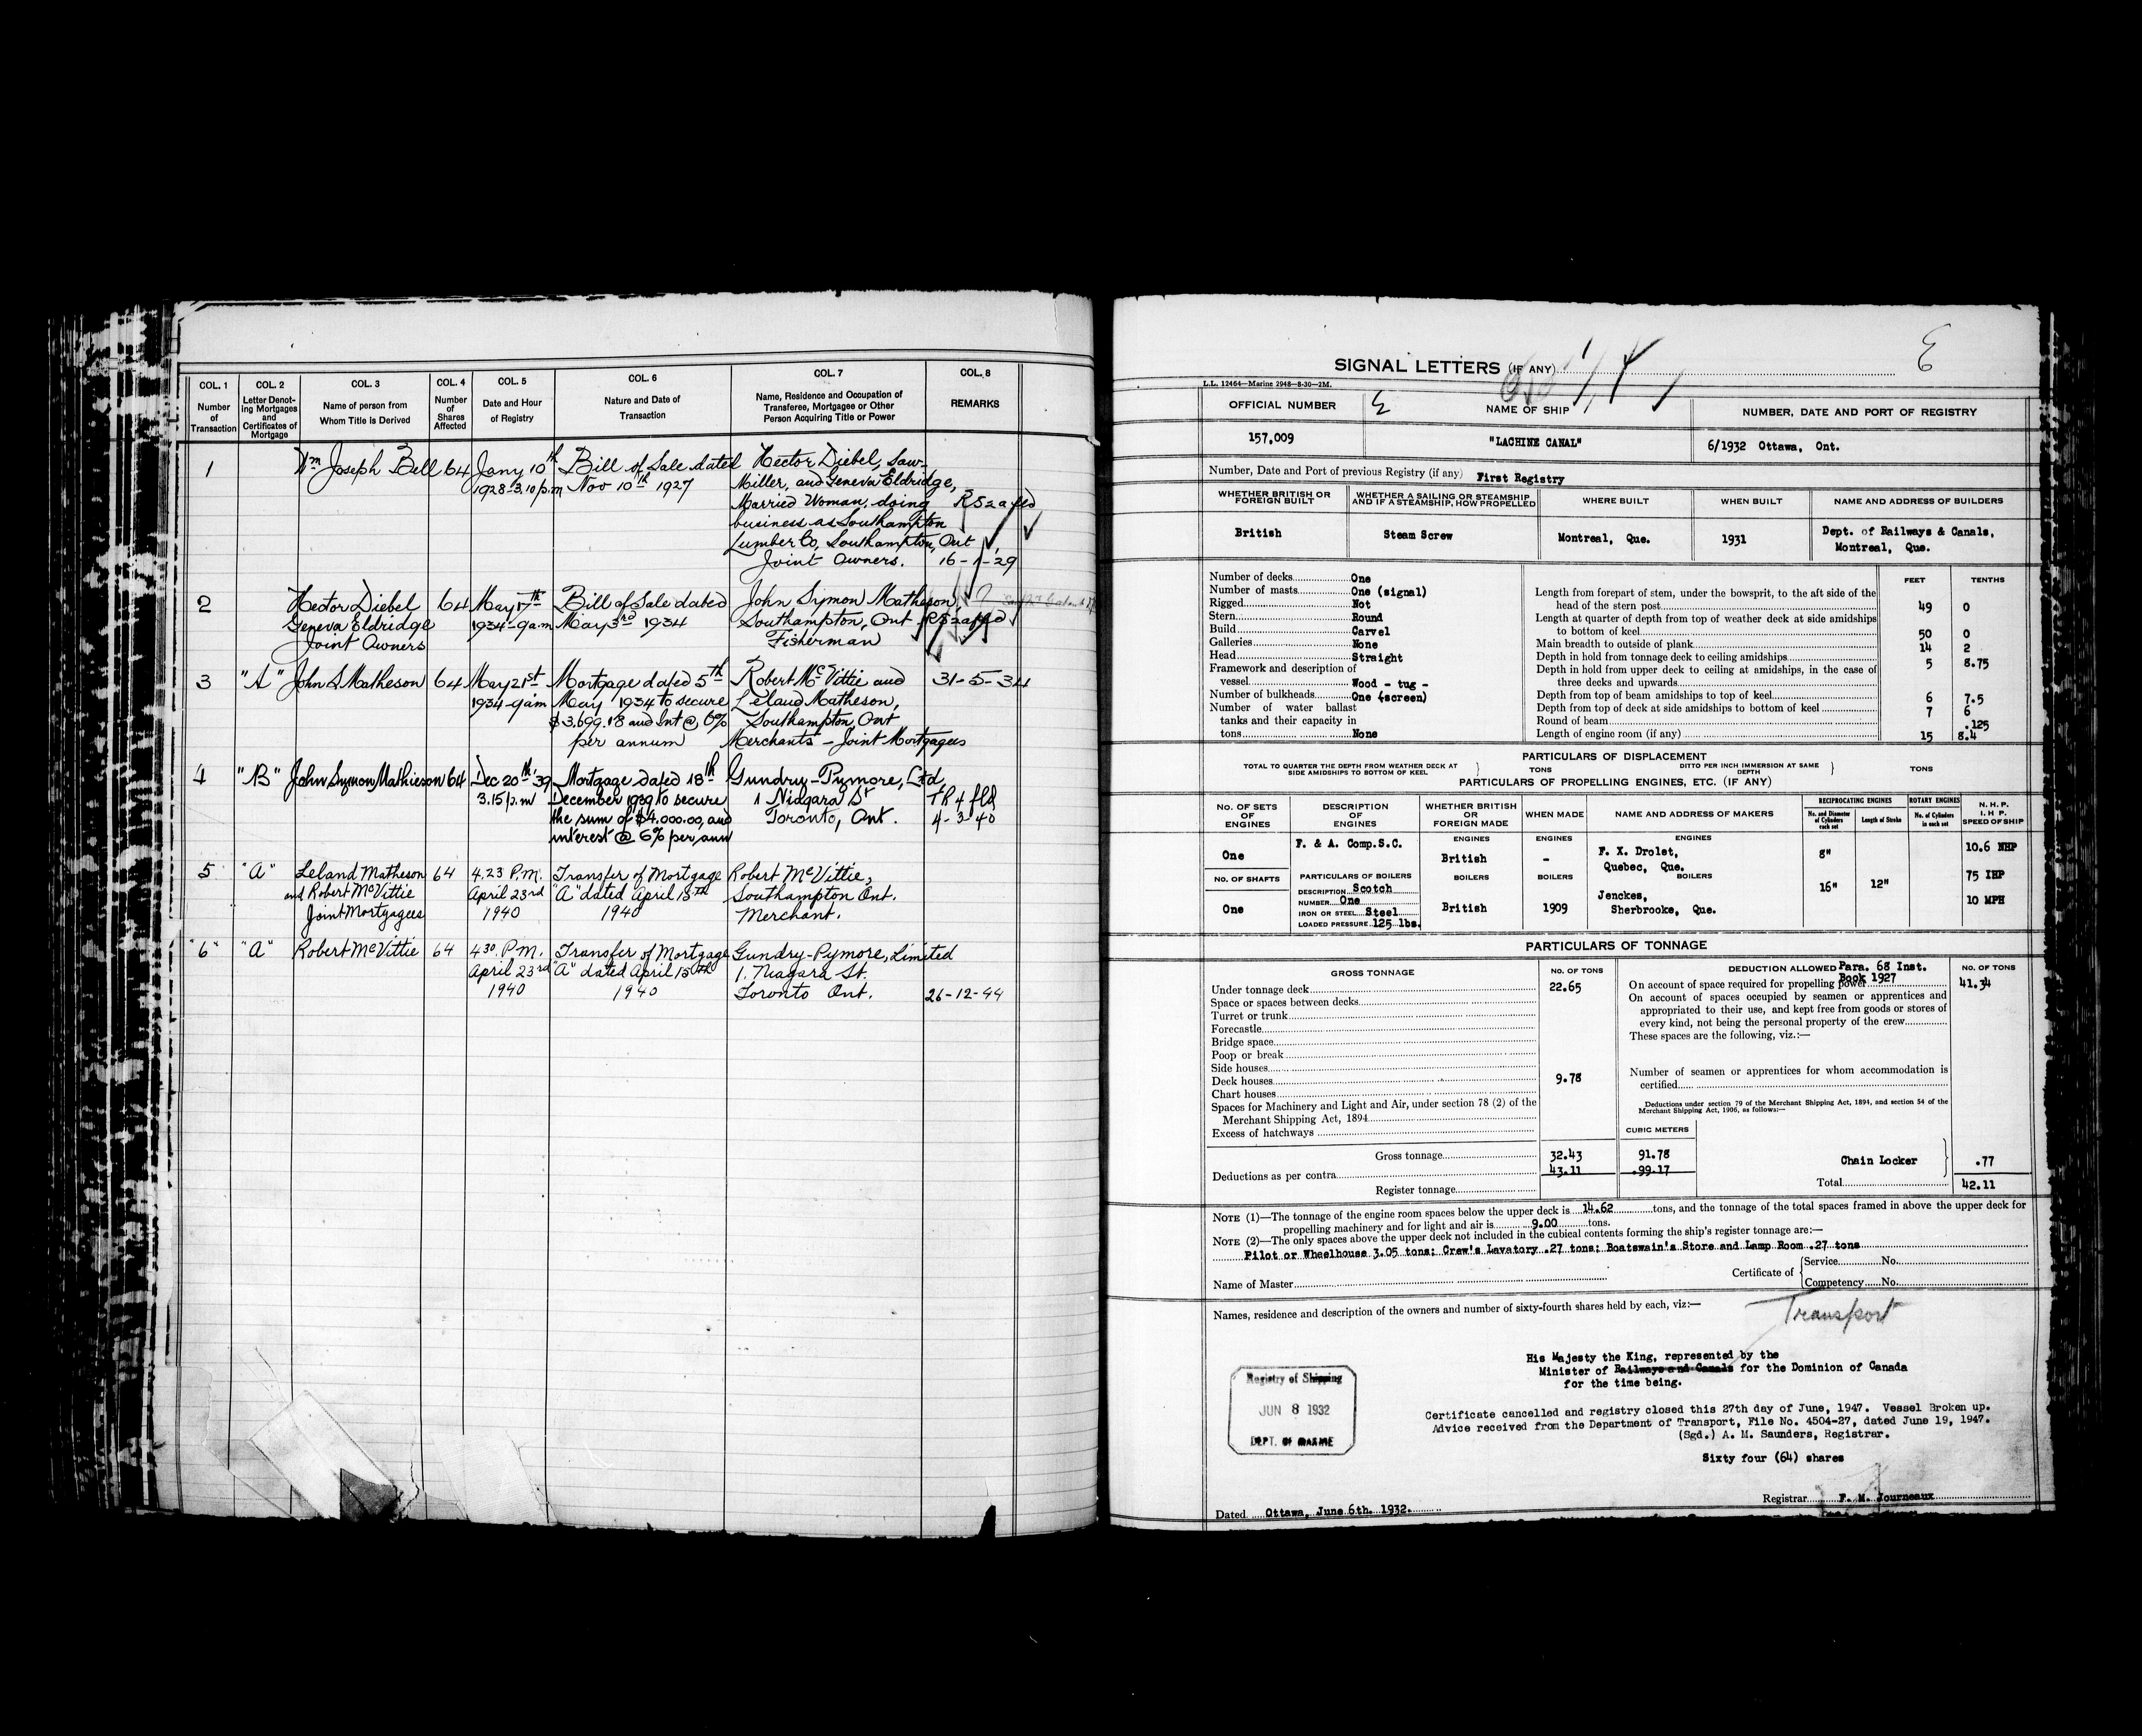 COL. 1
Number
of
Transaction
COL. 2
Letter Denot-
ing Mortgages
and
Certificates of
Mortgage
COL. 3
Name of person from
Whom Title is Derived
COL. 4
Number
of
Shares
Affected
COL. 5
Date and Hour
of Registry
COL. 6
Nature and Date of
Transaction
COL. 7
Name, Residence and Occupation of
Transferee, Mortgagee or Other
Person Acquiring Title or Power
COL. 8
REMARKS
1
Wm Joseph Bell
64
Jany 10th
1928-3.10 p.m
Bill of Sale dated
Nov 10th 1927
Hector Diebel, Saw-
Miller, and Geneva Eldridge,
Married Woman, doing
business as Southampton
Lumber Co, Southampton, Ont
Joint Owners.
16-1-29
2
Hector Diebel
Geneva Eldridge
Joint Owners
64
May 17th
1934-9 a.m
Bill of Sale dated
May 3rd 1934
John Symon Matheson,
Southampton, Ont
Fisherman
3
"A"
John S Matheson
64
May 21st
1934-9am
Mortgage dated 5th
May 1934 to secure
$3,699.18 and Int @ 6%
per annum
Robert McVittie and
Leland Matheson,
Southampton, Ont
Merchants - Joint Mortgagees
31-5-34
4
"B"
John Symon Mathieson
64
Dec 20th '39
3.15 p.m
Mortgage dated 18th
December 1939 to secure
the sum of $4.000.00, and
interest @ 6% per, ann
Gundry-Pymore, Ltd,
1 Niagara St
Toronto, Ont.
TR4 fld
4-3-40
5
"A"
Leland Matheson
and Robert McVittie
Joint Mortgagees
64
4.23 P.M.
April 23rd
1940
Transfer of Mortgage
"A" dated April 15th
1940
Robert McVittie,
Southampton Ont.
Merchant.
"6"
"A"
Robert McVittie
64
4 30 P.M.
April 23rd
1940
Transfer of Mortgage
"A" dated April 15th
1940
Gundry-Pymore, Limited
1. Niagara St.
Toronto Ont.
26-12-44
SIGNAL LETTERS (IF ANY)
L.L. 12464—Marine 2948—8-30—2M.
OFFICIAL NUMBER
NAME OF SHIP
NUMBER, DATE AND PORT OF REGISTRY
157,009
"LACHINE CANAL"
6/1932 Ottawa, Ont.
Number, Date and Port of previous Registry (if any) First Registry
WHETHER BRITISH OR
FOREIGN BUILT
WHETHER A SAILING OR STEAMSHIP
AND IF A STEAMSHIP, HOW PROPELLED
WHERE BUILT
WHEN BUILT
NAME AND ADDRESS OF BUILDERS
British
Steam Screw
Montreal, Que.
1931
Dept. of Railways & Canals,
Montreal, Que.
Number of decks One
Number of masts One (signal)
Rigged Not
Stern Round
Build Carvel
Galleries None
Head Straight
Framework and description of
vessel Wood - tug -
Number of bulkheads One (screen)
Number of water ballast
tanks and their capacity in
tons None
FEET
TENTHS
Length from forepart of stem, under the bowsprit, to the aft side of the
head of the stern post 49 0
Length at quarter of depth from top of weather deck at side amidships
to bottom of keel 50 0
Main breadth to outside of plank 14 2
Depth in hold from tonnage deck to ceiling amidships 5 8.75
Depth in hold from upper deck to ceiling at amidships, in the case of
three decks and upwards
Depth from top of beam amidships to top of keel 6 7.5
Depth from top of deck at side amidships to bottom of keel 7 6
Round of beam .125
Length of engine room (if any) 15 8.4
PARTICULARS OF DISPLACEMENT
TOTAL TO QUARTER THE DEPTH FROM WEATHER DECK AT
SIDE AMIDSHIPS TO BOTTOM OF KEEL
TONS
DITTO PER INCH IMMERSION AT SAME
DEPTH
TONS
PARTICULARS OF PROPELLING ENGINES, ETC. (IF ANY)
NO. OF SETS
OF
ENGINES
DESCRIPTION
OF
ENGINES
WHETHER BRITISH
OR
FOREIGN MADE
WHEN MADE
NAME AND ADDRESS OF MAKERS
RECIPROCATING ENGINES
No. and Diameter
of Cylinders
each set
Length of Stroke
ROTARY ENGINES
No. of Cylinders
in each set
N. H. P.
I. H. P.
SPEED OF SHIP
One
F. & A. Comp.S.C.
ENGINES
British
ENGINES
-
ENGINES
F. X. Drolet,
Quebec, Que.
8"
10.6 NHP
NO. OF SHAFTS
PARTICULARS OF BOILERS
BOILERS
BOILERS
BOILERS
75 IHP
One
DESCRIPTION Scotch
NUMBER One
IRON OR STEEL Steel
LOADED PRESSURE 125 lbs.
British
1909
Jenckes,
Sherbrooke, Que.
16"
12"
10 MPH
PARTICULARS OF TONNAGE
GROSS TONNAGE
NO. OF TONS
DEDUCTION ALLOWED Para. 68 Inst.
Book 1927
NO. OF TONS
Under tonnage deck 22.65
Space or spaces between decks
Turret or trunk
Forecastle
Bridge space
Poop or break
Side houses
Deck houses 9.78
Chart houses
Spaces for Machinery and Light and Air, under section 78 (2) of the
Merchant Shipping Act, 1894
Excess of hatchways
On account of space required for propelling power 41.34
On account of spaces occupied by seamen or apprentices and
appropriated to their use, and kept free from goods or stores of
every kind, not being the personal property of the crew
These spaces are the following, viz.:—
Number of seamen or apprentices for whom accommodation is
certified
Deductions under section 79 of the Merchant Shipping Act, 1894, and section 54 of the
Merchant Shipping Act, 1906, as follows:—
CUBIC METERS
Gross tonnage 32.43 91.78
Deductions as per contra 43.11 .99.17
Register tonnage
Chain Locker .77
Total 42.11
NOTE (1)—The tonnage of the engine room spaces below the upper deck is 14.62 tons, and the tonnage of the total spaces framed in above the upper deck for
propelling machinery and for light and air is 9.00 tons.
NOTE (2)—The only spaces above the upper deck not included in the cubical contents forming the ship's register tonnage are:—
Pilot or Wheelhouse 3.05 tons; Crew's Lavatory .27 tons; Boatswain's Store and Lamp Room .27 tons
Name of Master
Certificate of
Service No.
Competency No.
Names, residence and description of the owners and number of sixty-fourth shares held by each, viz:—
Transport
His Majesty the King, represented by the
Minister of Railways and Canals for the Dominion of Canada
for the time being.
Registry of Shipping
JUN 8 1932
DEPT. OF MARINE
Certificate cancelled and registry closed this 27th day of June, 1947. Vessel Broken up.
Advice received from the Department of Transport, File No. 4504-27, dated June 19, 1947.
(Sgd.) A. M. Saunders, Registrar.
Sixty four (64) shares
Registrar F. M. Journeaux
Dated Ottawa, June 6th. 1932.